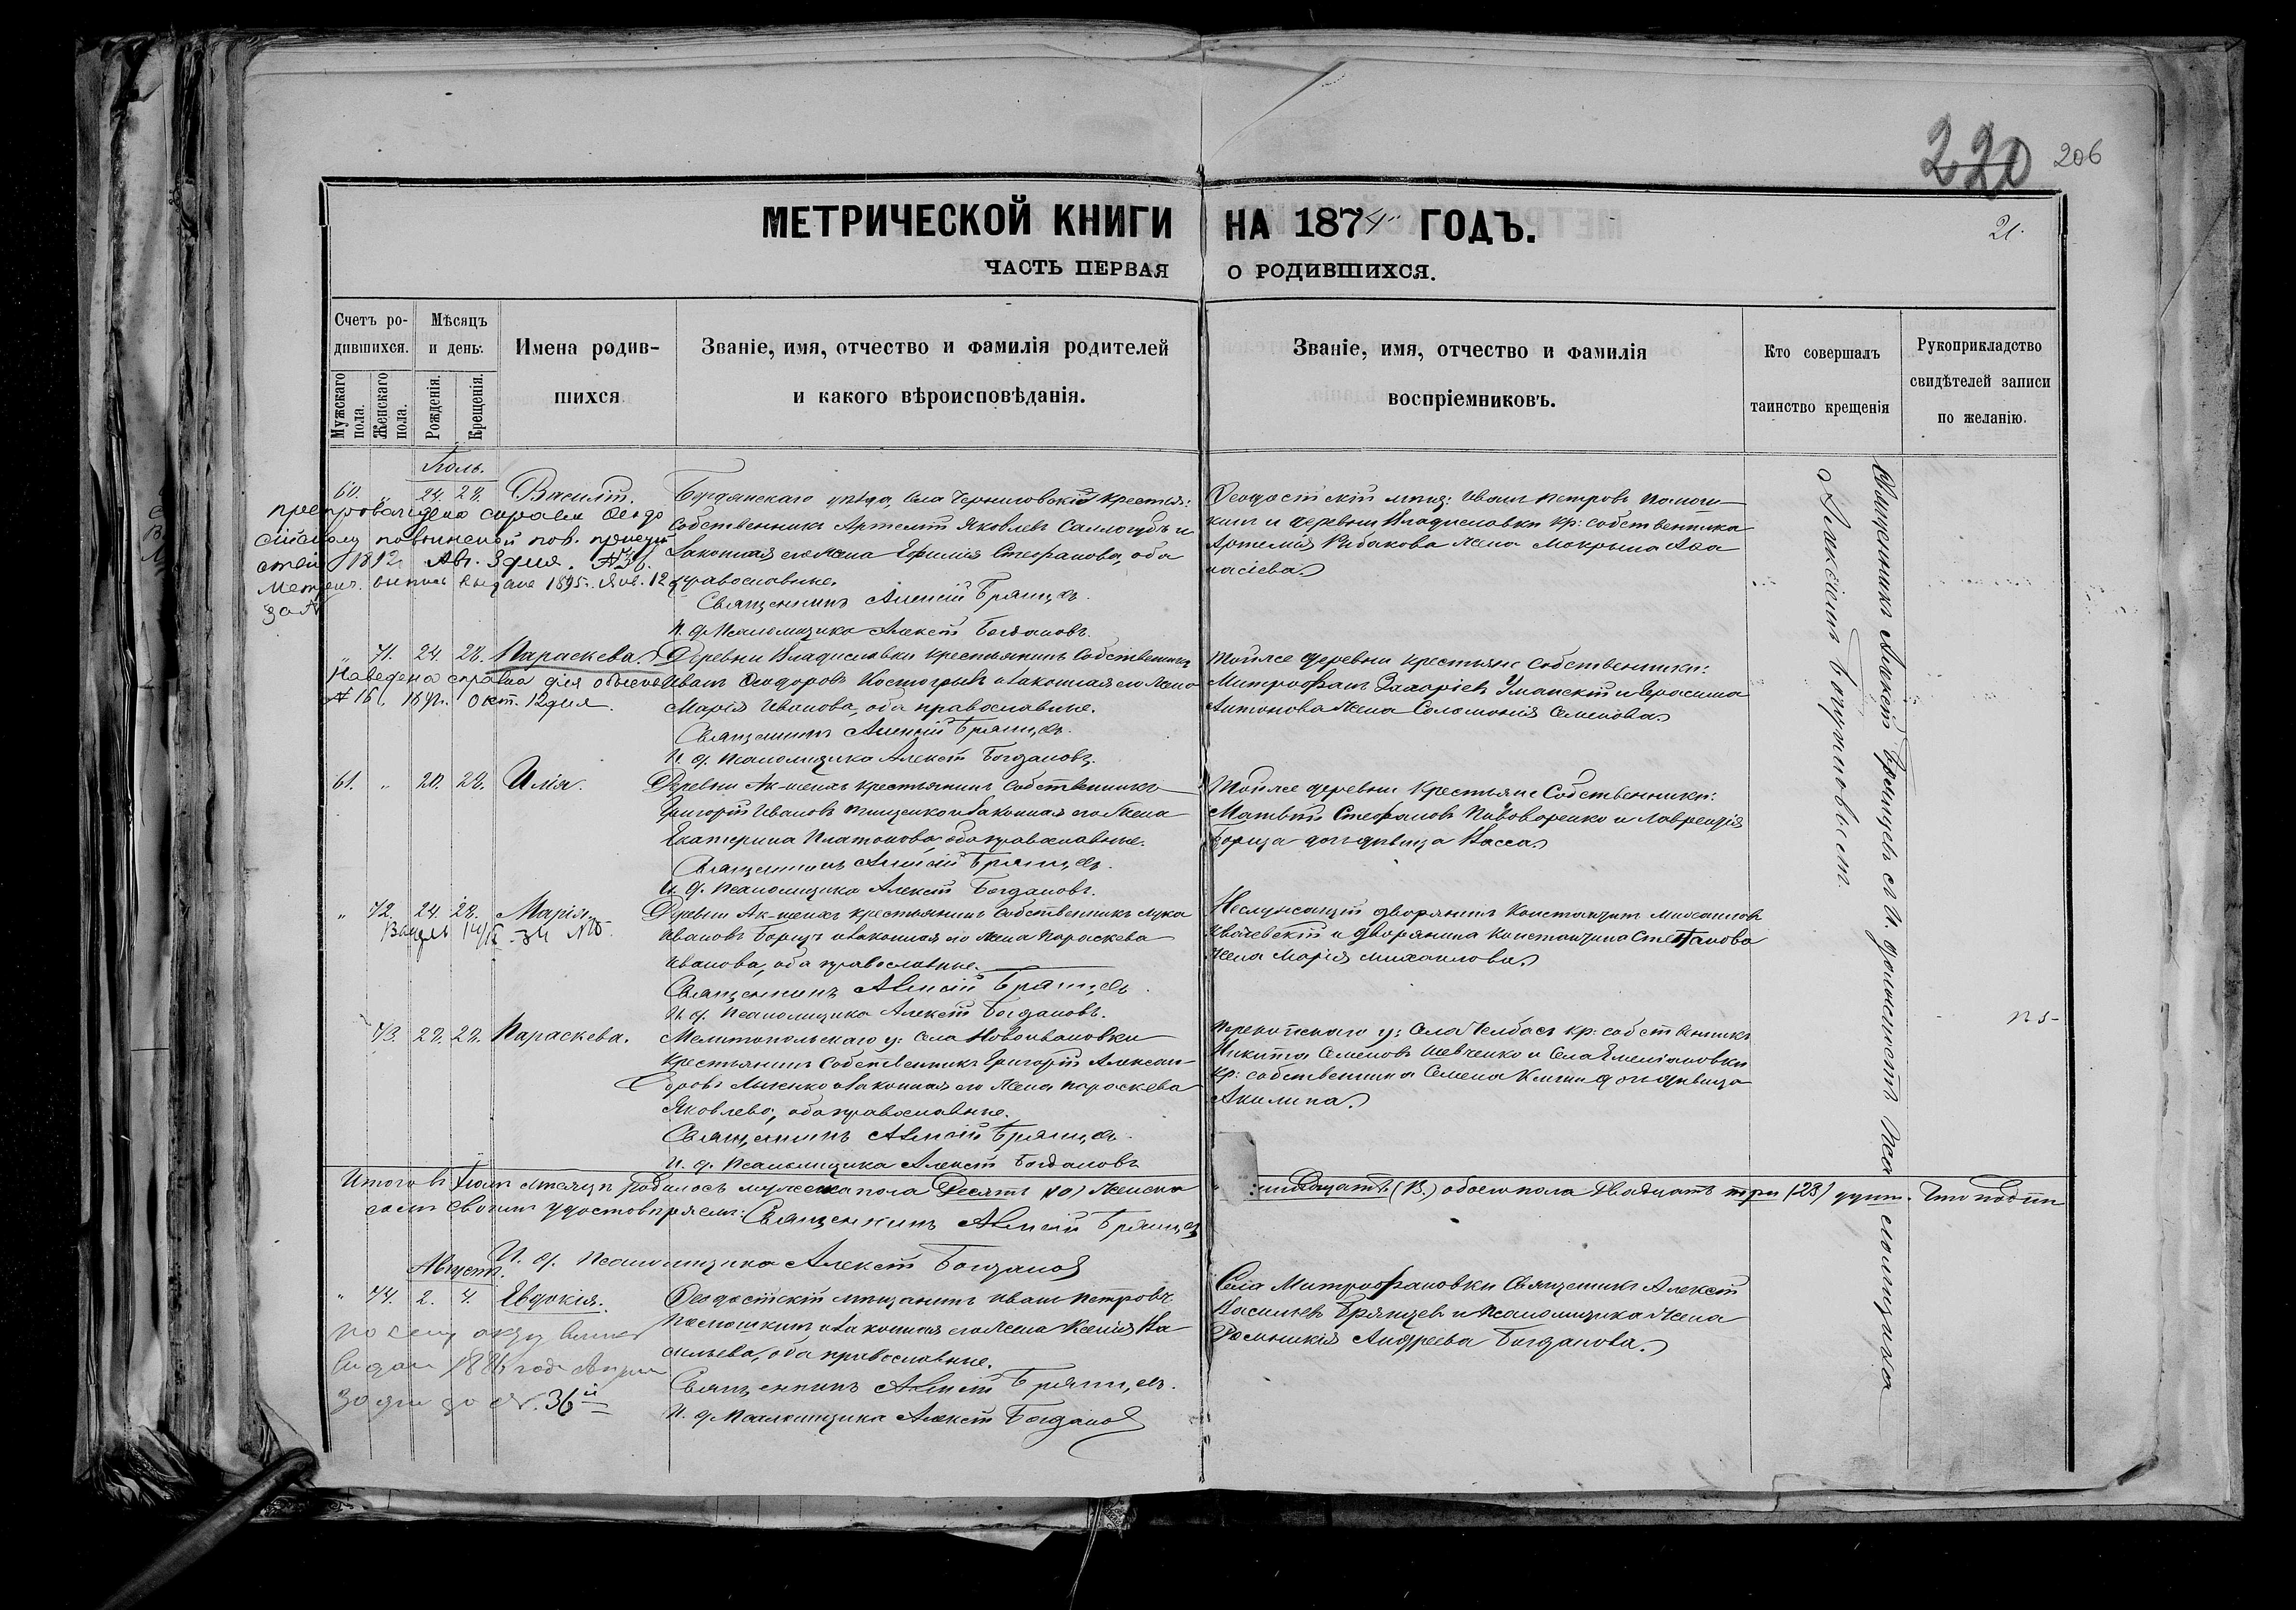 220 206
МЕТРИЧЕСКОЙ КНИГИ НА 1874 ГОДЪ.
21.
ЧАСТЬ ПЕРВАЯ О РОДИВШИХСЯ.
Счетъ родившихся.
Мужскаго пола.
Женскаго пола.
Мѣсяцъ и день.
Рожденія.
Крещенія.
Имена родившихся
Званіе, имя, отчество и фамилія родителей
и какого вѣроисповѣданія.
Званіе, имя, отчество и фамилія
воспріемниковъ.
Кто совершалъ
таинство крещенія
Рукоприкладство
свидѣтелей записи
по желанію.
Іюль.
60. " 24. 28. Василій.
Бердянскаго уѣзда, села Черниговки крестья:
собственникъ Артемій Яковлевъ Самогубъ и
законная его жена Ефимія Стефанова, оба
православные.
Священникъ Алексій Брянцевъ.
И. д. Псаломщика Алексѣй Богдановъ.
Ѳеодосійскій мѣщ: Иванъ Петровъ
и деревни Владиславки кр: собственника
Артемія Рибакова жена Мокрына Аѳа
насіева.
1895. Янв. 12
" 71. 24. 28. Параскева.
Деревни Владиславки крестьянинъ собственникъ
Иванъ Ѳеодоровъ Костогрызъ и законная его жена
Марія Иванова, оба православные.
Священникъ Алексій Брянцевъ.
И. д. Псаломщика Алексѣй Богдановъ.
Тойже деревни крестьяне собственники:
Митрофанъ Захаріевъ Уманскій и Герасима
Антонова жена Соломонія Семенова.
Наведена справка для
Окт. 12 дня.
61. " 20. 28. Илія.
Деревни Ак-шеихъ крестьянинъ собственникъ
Григорій Ивановъ Тищенко и законная его жена
Екатерина Платонова, оба православные.
Священникъ Алексій Брянцевъ.
И. д. Псаломщика Алексѣй Богдановъ.
Тойже деревни крестьяне собственники:
Матвѣй Стефановъ Пивоваренко и Лаврентія
Борща дочь дѣвица Васса.
" 72. 24. 28. Марія.
Деревни Ак-шеихъ крестьянинъ собственникъ Лука
Ивановъ Борщъ и законная его жена Параскева
Иванова, оба православные.
Священникъ Алексій Брянцевъ.
И. д. Псаломщика Алексѣй Богдановъ.
Неслужащій дворянинъ Константинъ Михаиловъ
и дворянина Константина Степанова
жена Марія Михаилова.
" 73. 22. 28. Параскева.
Мелитопольскаго у: села Новоивановки
крестьянинъ собственникъ Григорій Алексан-
дровъ Лысенко и законная его жена Параскева
Яковлева, оба православные.
Священникъ Алексій Брянцевъ.
И. д. Псаломщика Алексѣй Богдановъ
Перекопскаго у: села Челбасъ кр: собственникъ
Никита Семеновъ Шевченко и села Емеліановки
кр: собственника Семена дочь дѣвица
Акилина.
Итого въ Іюлѣ мѣсяцѣ родилось мужеска пола десять (10) женска
(13.) обоего пола двадцать три (23) душъ. Что подпи
семъ своимъ удостовѣряемъ: Священникъ Алексій Брянцевъ
И. д. Псаломщика Алексѣй Богдановъ
Августъ.
" 74. 2. 4. Евдокія.
Ѳеодосійскій мѣщанинъ Иванъ Петровъ
и законная его жена Ксенія Ва
сильева, оба православные.
Священникъ Алексій Брянцевъ.
И. д. Псаломщика Алексѣй Богдановъ
Села Митрофановки священникъ Алексѣй
Васильевъ Брянцевъ и псаломщика жена
Андреева Богданова.
30 дня за № 36й
Священникъ Алексій Брянцевъ съ И. должность псаломщика
Алексѣемъ Богдановымъ.